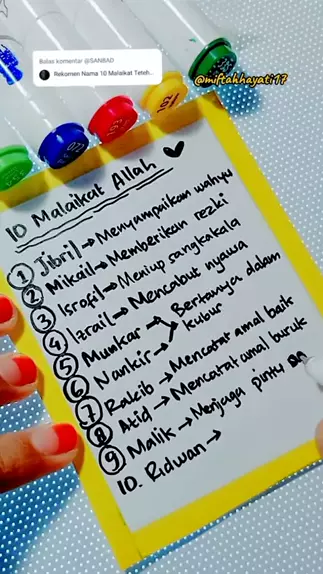 Balas komentar @SANBAD
Rekomen Nama 10 Malaikat Teteh..
@miftakhayati17
10 Malaikat Allah
1 Jibril → Menyampaikan wahyu
2 Mikail → Memberikan rezki
3 Isrofil → Meniup sangkakala
4 Izrail → Mencabut nyawa
5 Munkar → Bertanya dalam
6 Nankir → kubur
7 Rakib → Mencatat amal baik
8 Atid → Mencatat amal buruk
9 Malik → Menjaga pintu
10. Ridwan →